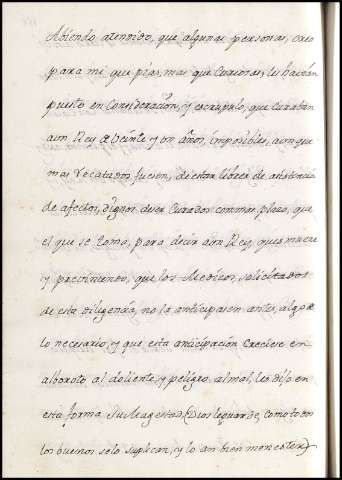 Abiendo atendido, que algunas personas, creo
para mi que pias, mas que Curiosas, les habian
puesto en Consideracion, y escrupulo, que Curaban
a un Rey de Veinte y un años, imposibles, aunque
mas recatados fuesen, de estar libres de
de afectos, dignos de ser Curados con mas plazo, que
el que se toma, para decir a un Rey, que se muere
y previniendo, que los Medicos, solicitados
de esta diligencia, no la anticipasen antes, algo de
lo necesario, y que esta anticipacion Creciese en
alboroto al doliente, y peligro al mal, les dijo en
esta forma Su Magestad (Dios le guarde, como todos
los buenos solo suplican, y lo an bien menester)